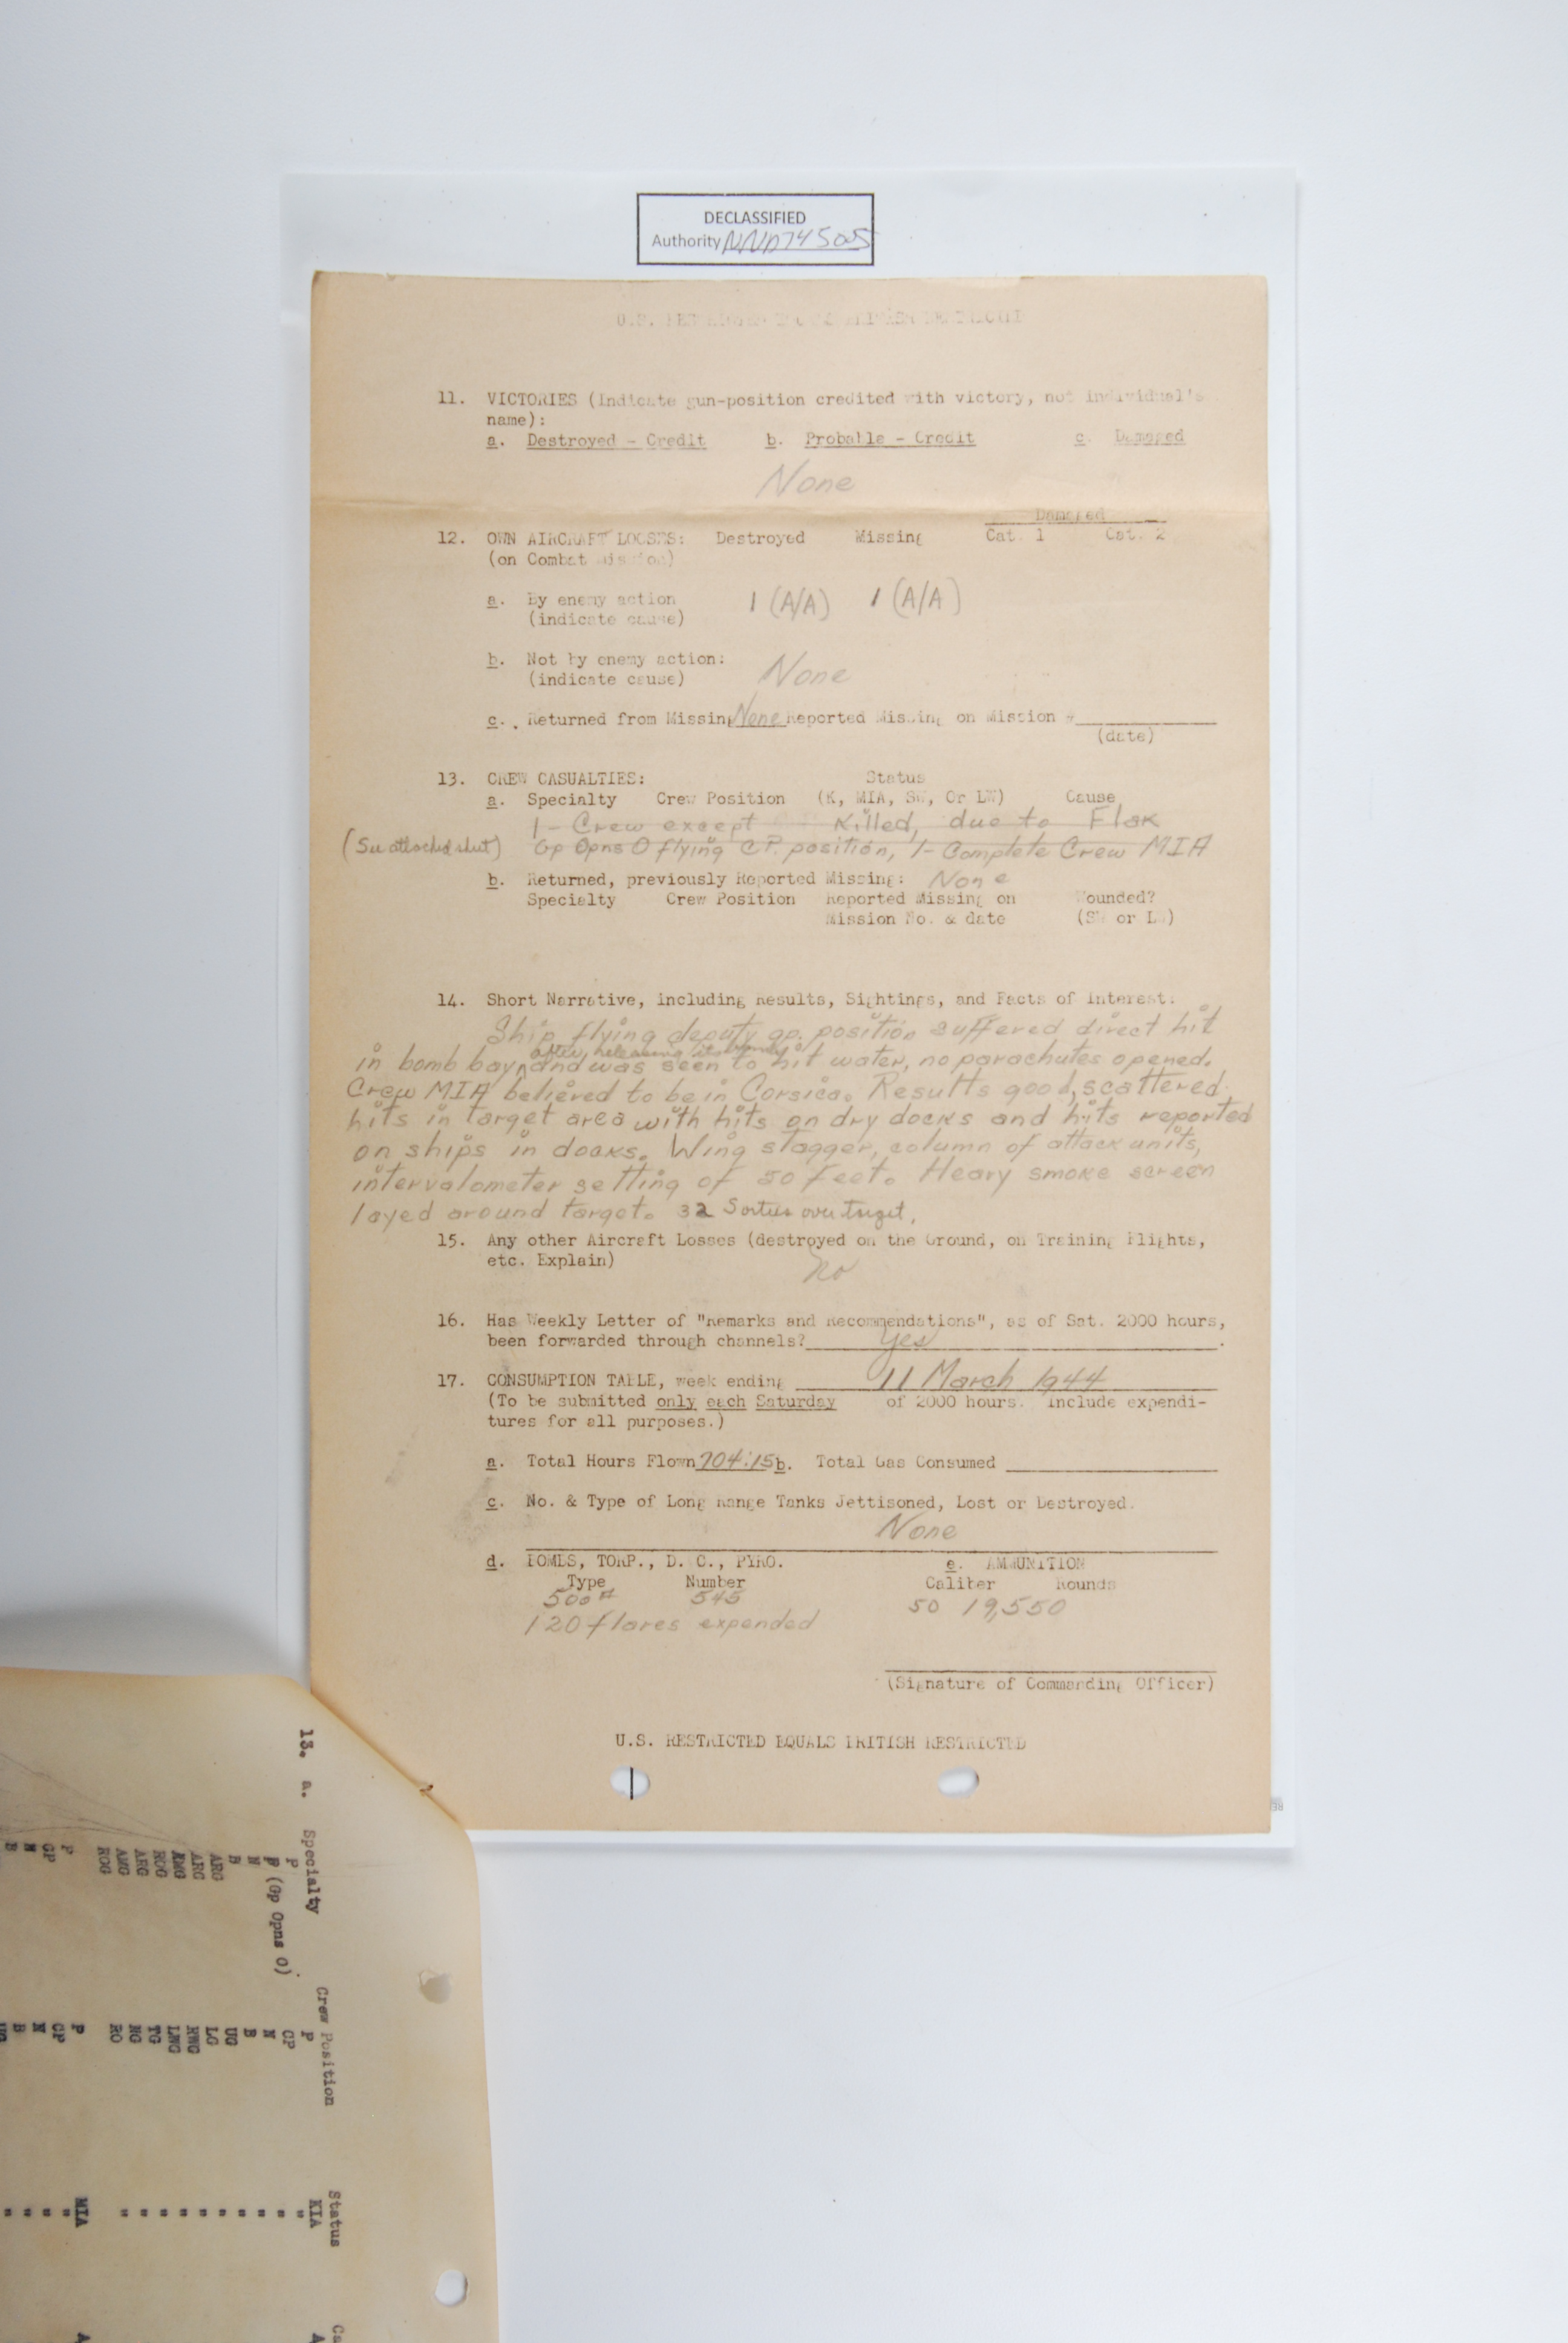 DECLASSIFIED
Authority NND745005
11. VICTORIES (Indicate gun-position credited with victory, not individual's
name):
a. Destroyed - Credit b. Probable - Credit c. Damaged
None
Damaged
12. OWN AIRCRAFT LOSSES: Destroyed Missing Cat. 1 Cat. 2
(on Combat Mission)
a. By enemy action 1 (A/A) 1 (A/A)
(indicate cause)
b. Not by enemy action: None
(indicate cause)
c. Returned from Missing None Reported Missing on Mission #
(date)
13. CREW CASUALTIES: Status
a. Specialty Crew Position (K, MIA, SW, Or LW) Cause
1- Crew except Killed, due to Flak
(See attached sheet) Gp Opns O flying CP. position, 1- Complete Crew MIA
b. Returned, previously Reported Missing: None
Specialty Crew Position Reported Missing on Wounded?
Mission No. & date (SW or LW)
14. Short Narrative, including Results, Sightings, and Facts of Interest:
Ship flying deputy gp. position suffered direct hit
in bomb bay after releasing its bombs and was seen to hit water, no parachutes opened.
Crew MIA believed to be in Corsica. Results good, scattered
hits in target area with hits on dry docks and hits reported
on ships in docks. Wing stagger, column of attack units,
intervalometer setting of 50 feet. Heavy smoke screen
layed around target. 32 Sorties over target.
15. Any other Aircraft Losses (destroyed on the Ground, on Training Flights,
etc. Explain)
No
16. Has Weekly Letter of "Remarks and Recommendations", as of Sat. 2000 hours,
been forwarded through channels? Yes.
17. CONSUMPTION TABLE, week ending 11 March 1944
(To be submitted only each Saturday of 2000 hours. Include expendi-
tures for all purposes.)
a. Total Hours Flown 704:15 b. Total Gas Consumed
c. No. & Type of Long Range Tanks Jettisoned, Lost or Destroyed.
None
d. BOMBS, TORP., D. C., PYRO. e. AMMUNITION
Type Number Caliber Rounds
500# 545 50 19,550
120 flares expended
(Signature of Commanding Officer)
U.S. RESTRICTED EQUALS BRITISH RESTRICTED
13. a. Specialty Crew Position Status
P P KIA
P (Gp Opns O) CP "
N N "
B B "
ARG UG "
ARG LG "
AMG RWG "
ROG LWG "
ARG TG "
AMG NG "
ROG RO "
P P MIA
CP CP "
N N "
B B "